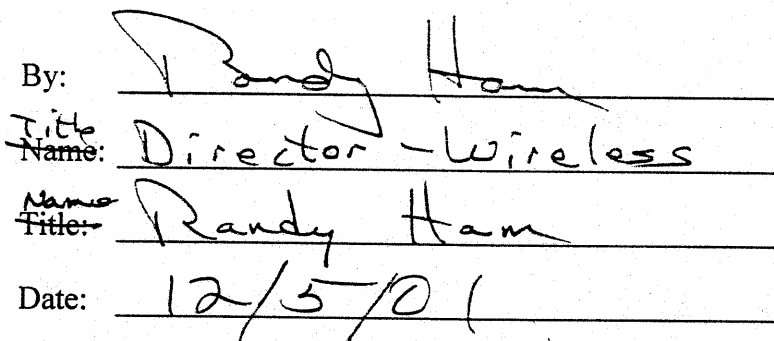 By: Randy Ham
Title
Name: Director - Wireless
Name
Title: Randy Ham
Date: 12/5/01